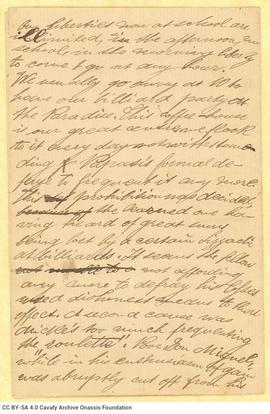 Our liberties now at school are
illimited, in the afternoon no
school, in the morning liberty
to come & go at any hour.
We usually go away at 10 to
have our billiard party at
the Paradiso. This coffee-house
is our great we flock
to it every day notwithstan
ding Papras's formal de-
fense to frequent it any more.
This prohibition was decided
the learned one ha
ving heard of great sums
being lost by a certain
at billiards. It seems the fellow
not affording
any more to defray his losses
used dishonest means to that
effect. A second cause was
too much frequenting
the "roulette". Poor Don Miguel
while in his enthusiasm of gain
was abruptly cut off from his
CC BY-SA 4.0 Cavafy Archive Onassis Foundation